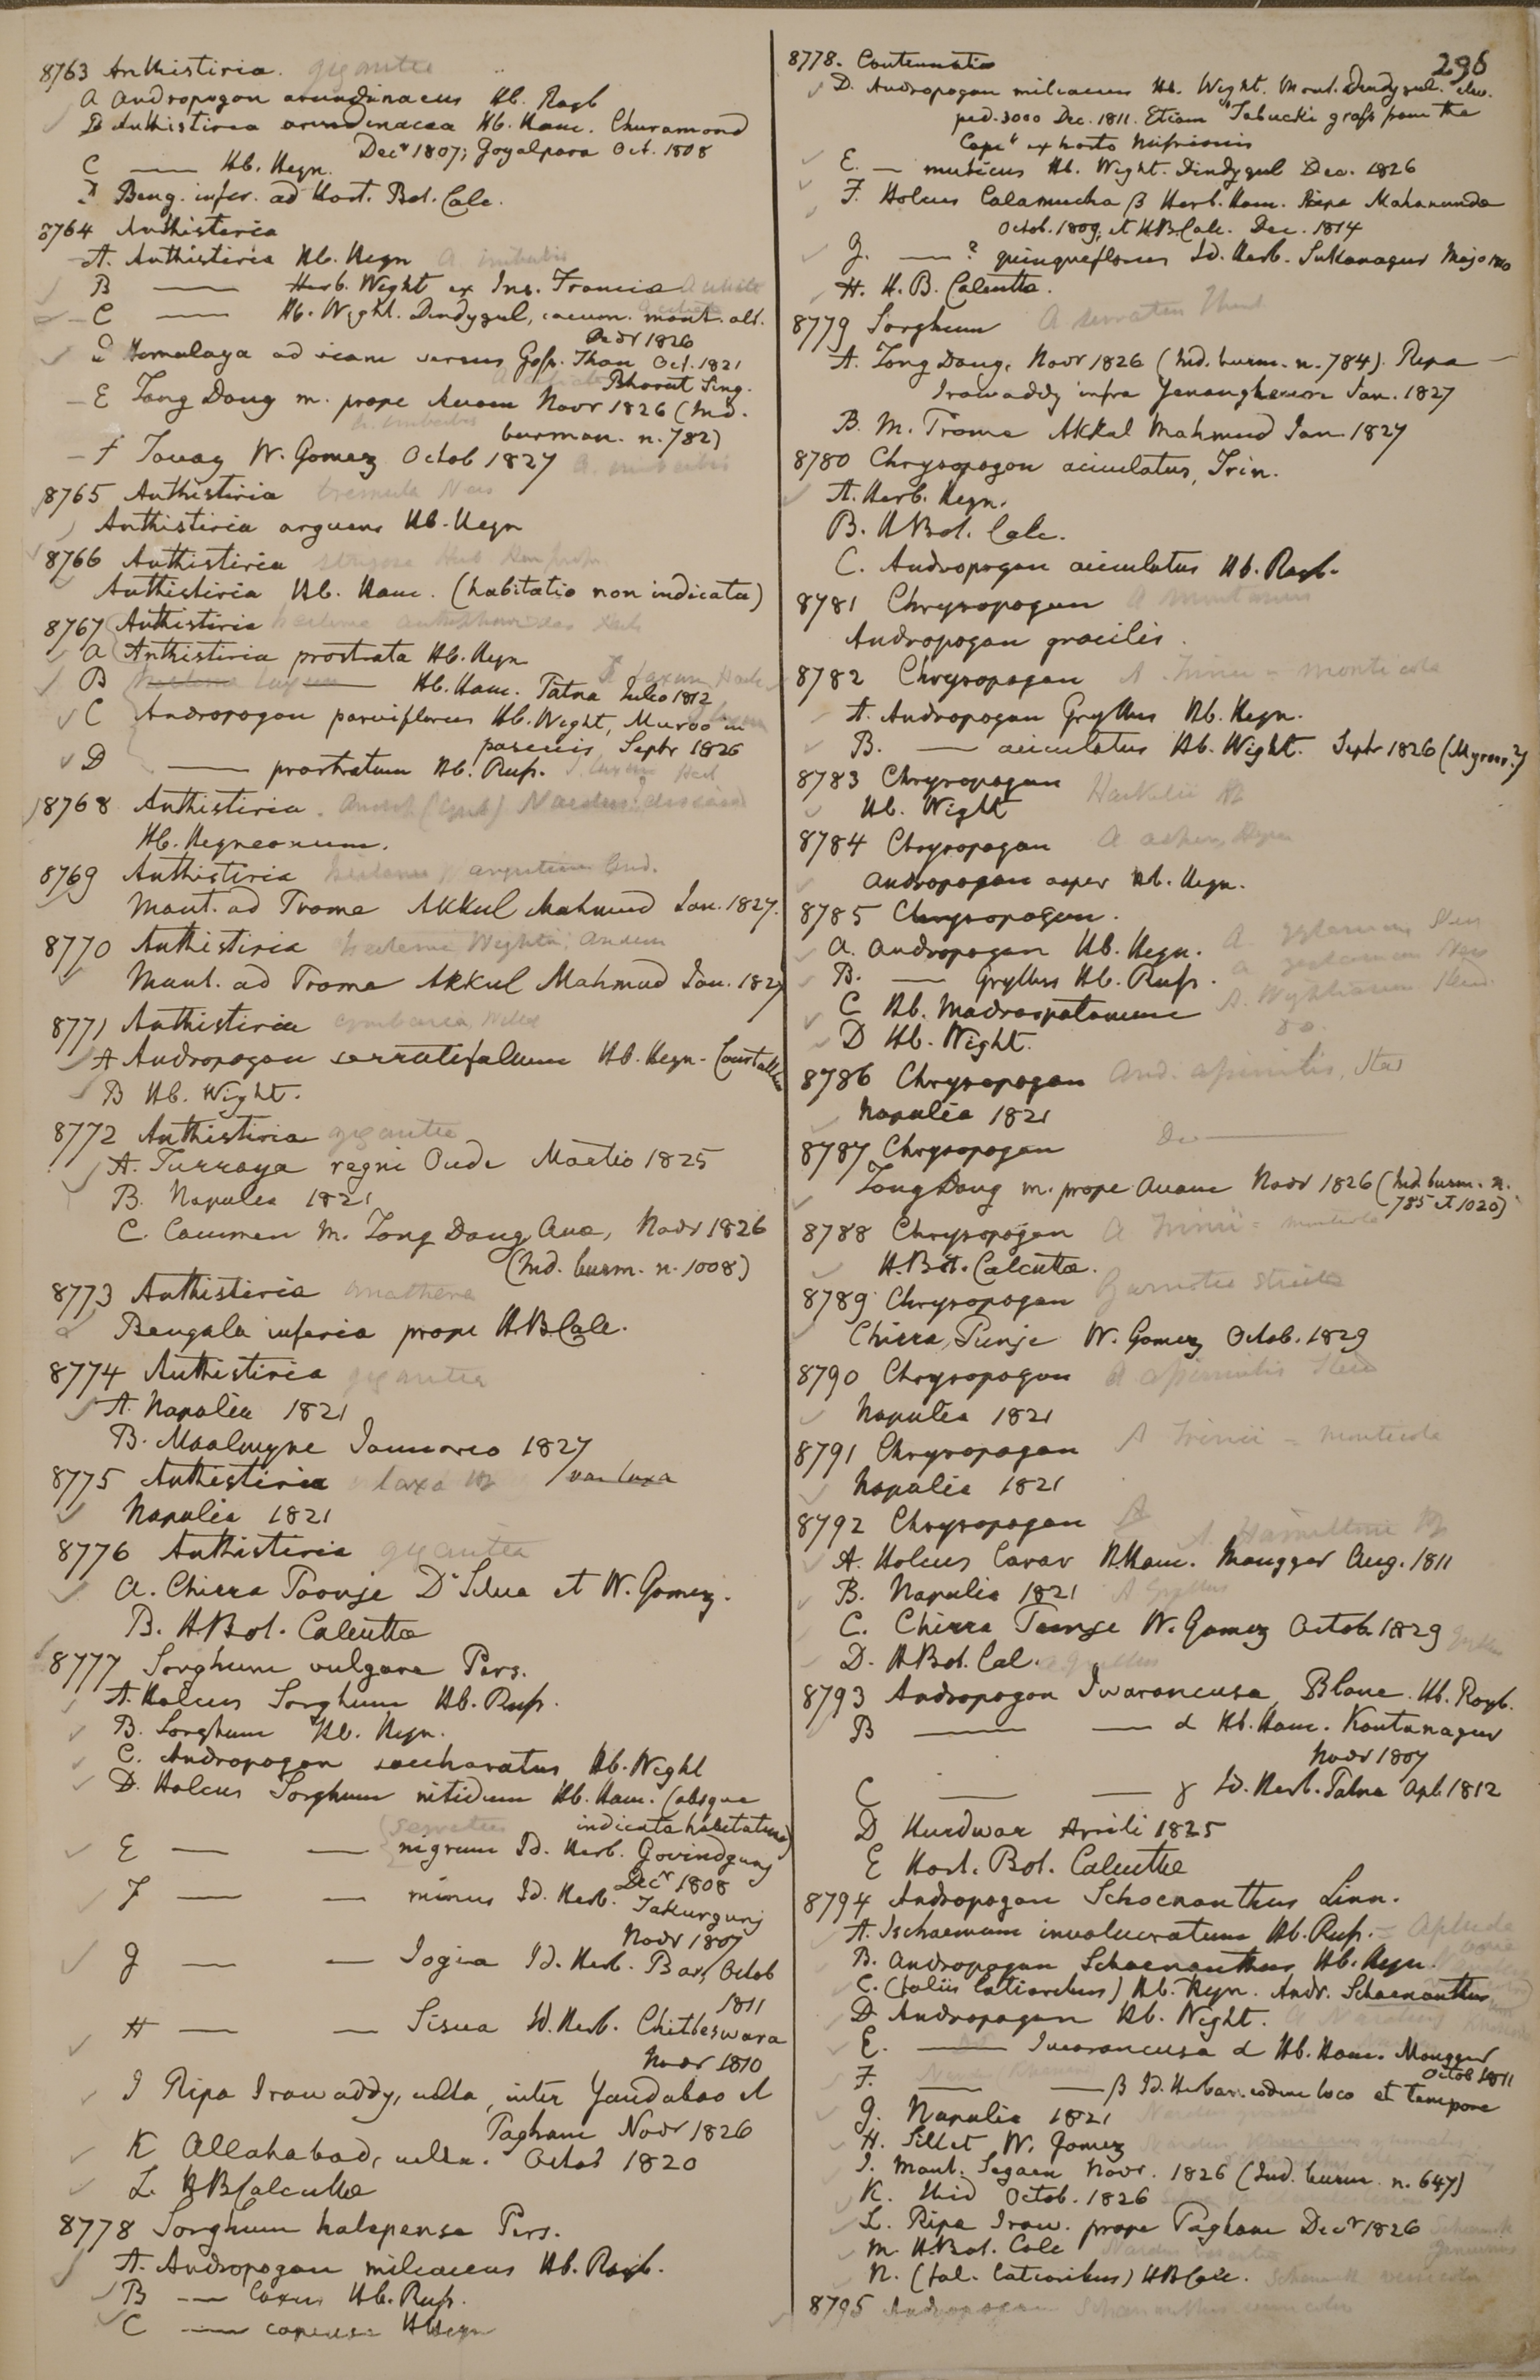 296
8763 Anthistiria. gigantea
A Andropogon arundinaceus Hb. Roxb
B Anthistiria arundinacea Hb. Ham. Churamond
Decr 1807; Goyalpara Oct. 1808
C — Hb. Heyn.
D Beng. infer. ad Hort. Bot. Calc.
8764 Anthistiria
A. Anthistiria Hb. Heyn A. imberbis
B — Herb. Wight ex Ins. Francia A ciliata
C — Hb. Wight. Dindygul, cacum. mont. alt.
Decr 1826
D Hemalaya ad viam versus Gosp. Than Oct. 1821
Bharut Sing.
E Tong Doug m. prope Avam Novr 1826 (Ind.
burman. n. 782)
F Tavoy W. Gomez Octob 1827 A. imberbis
8765 Anthistiria tremula Nees
Anthistiria arguens Hb. Heyn
8766 Anthistiria strigosa Herb Ham
Anthistiria Hb. Ham. (habitatio non indicata)
8767 Anthistiria
A Anthistiria prostrata Hb. Heyn
B — Hb. Ham. Patna Julio 1812
C Andropogon parviflorus Hb. Wight, Muroo in
pascuis Septr 1826
D — prostratum Hb. Russ. I. laxum Hack
8768 Anthistiria. Nardus
Hb. Heyneanum.
8769 Anthistiria
Mont. ad Prome Akkul Mahmud Jan. 1827.
8770 Anthistiria Wightii, Anders
Mont. ad Prome Akkul Mahmud Jan. 1827
8771 Anthistiria cymbaria, Willd
A Andropogon serratifolium Hb. Heyn - Courtallum
B Hb. Wight.
8772 Anthistiria gigantea
A. Turraya regni Oude Martio 1825
B. Napalia 1821
C. Cacumen M. Tong Doug Ava, Novr 1826
(Ind. burm. n. 1008)
8773 Anthistiria anathera
Bengala inferia prope H.B. Calc.
8774 Anthistiria gigantea
A. Napalia 1821
B. Moalmyne Januario 1827
8775 Anthistiria laxa var laxa
Napalia 1821
8776 Anthistiria gigantea
A. Chirra Poonje D'Silva et W. Gomez.
B. H Bot. Calcutta
8777 Sorghum vulgare Pers.
A. Holcus Sorghum Hb. Russ.
B. Sorghum Hb. Heyn.
C. Andropogon saccharatus Hb. Wight
D. Holcus Sorghum nitidum Hb. Ham. (absque
indicata habitatione)
E — — nigrum Id. Herb. Govindgunj
Decr 1808
F — — minus Id. Herb. Takurgunj
Novr 1807
G — — Jogia Id. Herb. Bar, Octob
1811
H — — Sisua Id. Herb. Chitteswara
Novr 1810
I Ripa Irawaddy, culta, inter Yandaboo et
Pagham Novr 1826
K Allahabad, culta. Octob 1820
L. H B Calcutta
8778 Sorghum halepense Pers.
A. Andropogon miliaceus Hb. Roxb.
B — laxus Hb. Russ.
C — capensis H Heyn
8778. Continuatio
D. Andropogon miliaceus Hb. Wight. Mont. Dindygul. elev.
ped. 3000 Dec. 1811. Etiam "Tabucki grass from the
Cape" ex horto Missionis
E. — muticus Hb. Wight. Dindygul Dec. 1826
F. Holcus Calamucha β Herb. Ham. Ripa Mahanunda
Octob. 1809, et H B Calc. Dec. 1814
G. — ? quinqueflorus Id. Herb. Sukanagur Majo 1810
H. H. B. Calcutta.
8779 Sorghum A serratus Thunb
A. Tong Doug. Novr 1826 (Ind. burm. n. 784). Ripa
Irawaddy infra Yenangheoun Jan. 1827
B. M. Prome Akkul Mahmud Jan 1827
8780 Chrysopogon aciculatus, Trin.
A. Herb. Heyn.
B. H Bot. Calc.
C. Andropogon aciculatus Hb. Roxb.
8781 Chrysopogon A montanus
Andropogon gracilis.
8782 Chrysopogon A. Trinii = monticola
A. Andropogon Gryllus Hb. Heyn.
B. — aciculatus Hb. Wight. Septr 1826 (Mysore?)
8783 Chrysopogon Hackelii
Hb. Wight
8784 Chrysopogon A asper, Heyne
Andropogon asper Hb. Heyn.
8785 Chrysopogon.
A. Andropogon Hb. Heyn. A. zeylanicus Nees
B. — Gryllus Hb. Russ. A zeylanicus Nees
C Hb. Madraspatanum A. Wightianus Steud
D Hb. Wight. do.
8786 Chrysopogon And. affinis, Steud
Napalia 1821
8787 Chrysopogon Do —
Tong Doug m. prope Avam Novr 1826 (Ind. burm. n.
785 et 1020)
8788 Chrysopogon A Trinii = monticola
H. Bot. Calcutta.
8789 Chrysopogon Garnotia stricta
Chirra Punje W. Gomez Octob. 1829
8790 Chrysopogon A Steud
Napalia 1821
8791 Chrysopogon A Trinii = monticola
Napalia 1821
8792 Chrysopogon A. Hamiltonii
A. Holcus Carar H. Ham. Mongger Aug. 1811
B. Napalia 1821 A Gryllus
C. Chirra Poonje W. Gomez Octob 1829 Gryllus
D. H Bot. Cal. A gryllus
8793 Andropogon Iwarancusa, Blane. Hb. Roxb.
B — — α Hb. Ham. Kautanagur
Novr 1807
C — — γ Id. Herb. Patna Apl. 1812
D Hurdwar Aprili 1825
E Hort. Bot. Calcutta
8794 Andropogon Schoenanthus Linn.
A. Ischaemum involucratum Hb. Russ. = Apluda
B. Andropogon Schoenanthus Hb. Heyn.
C. (foliis latioribus) Hb. Heyn. Andr. Schoenanthus
D. Andropogon Hb. Wight.
E. — Iwarancusa α Hb. Ham. Mongger
Octob 1811
F. — — β Id. Herbar. eodem loco et tempore
G. Napalia 1821
H. Sillet W. Gomez
I. Mont. Segaen Novr. 1826 (Ind. burm. n. 647)
K. Ibid Octob. 1826
L. Ripa Iraw. prope Pagham Decr 1826
M H. Bot. Calc
N. (fol. latioribus) H B Calc.
8795 Andropogon Schoenanthus